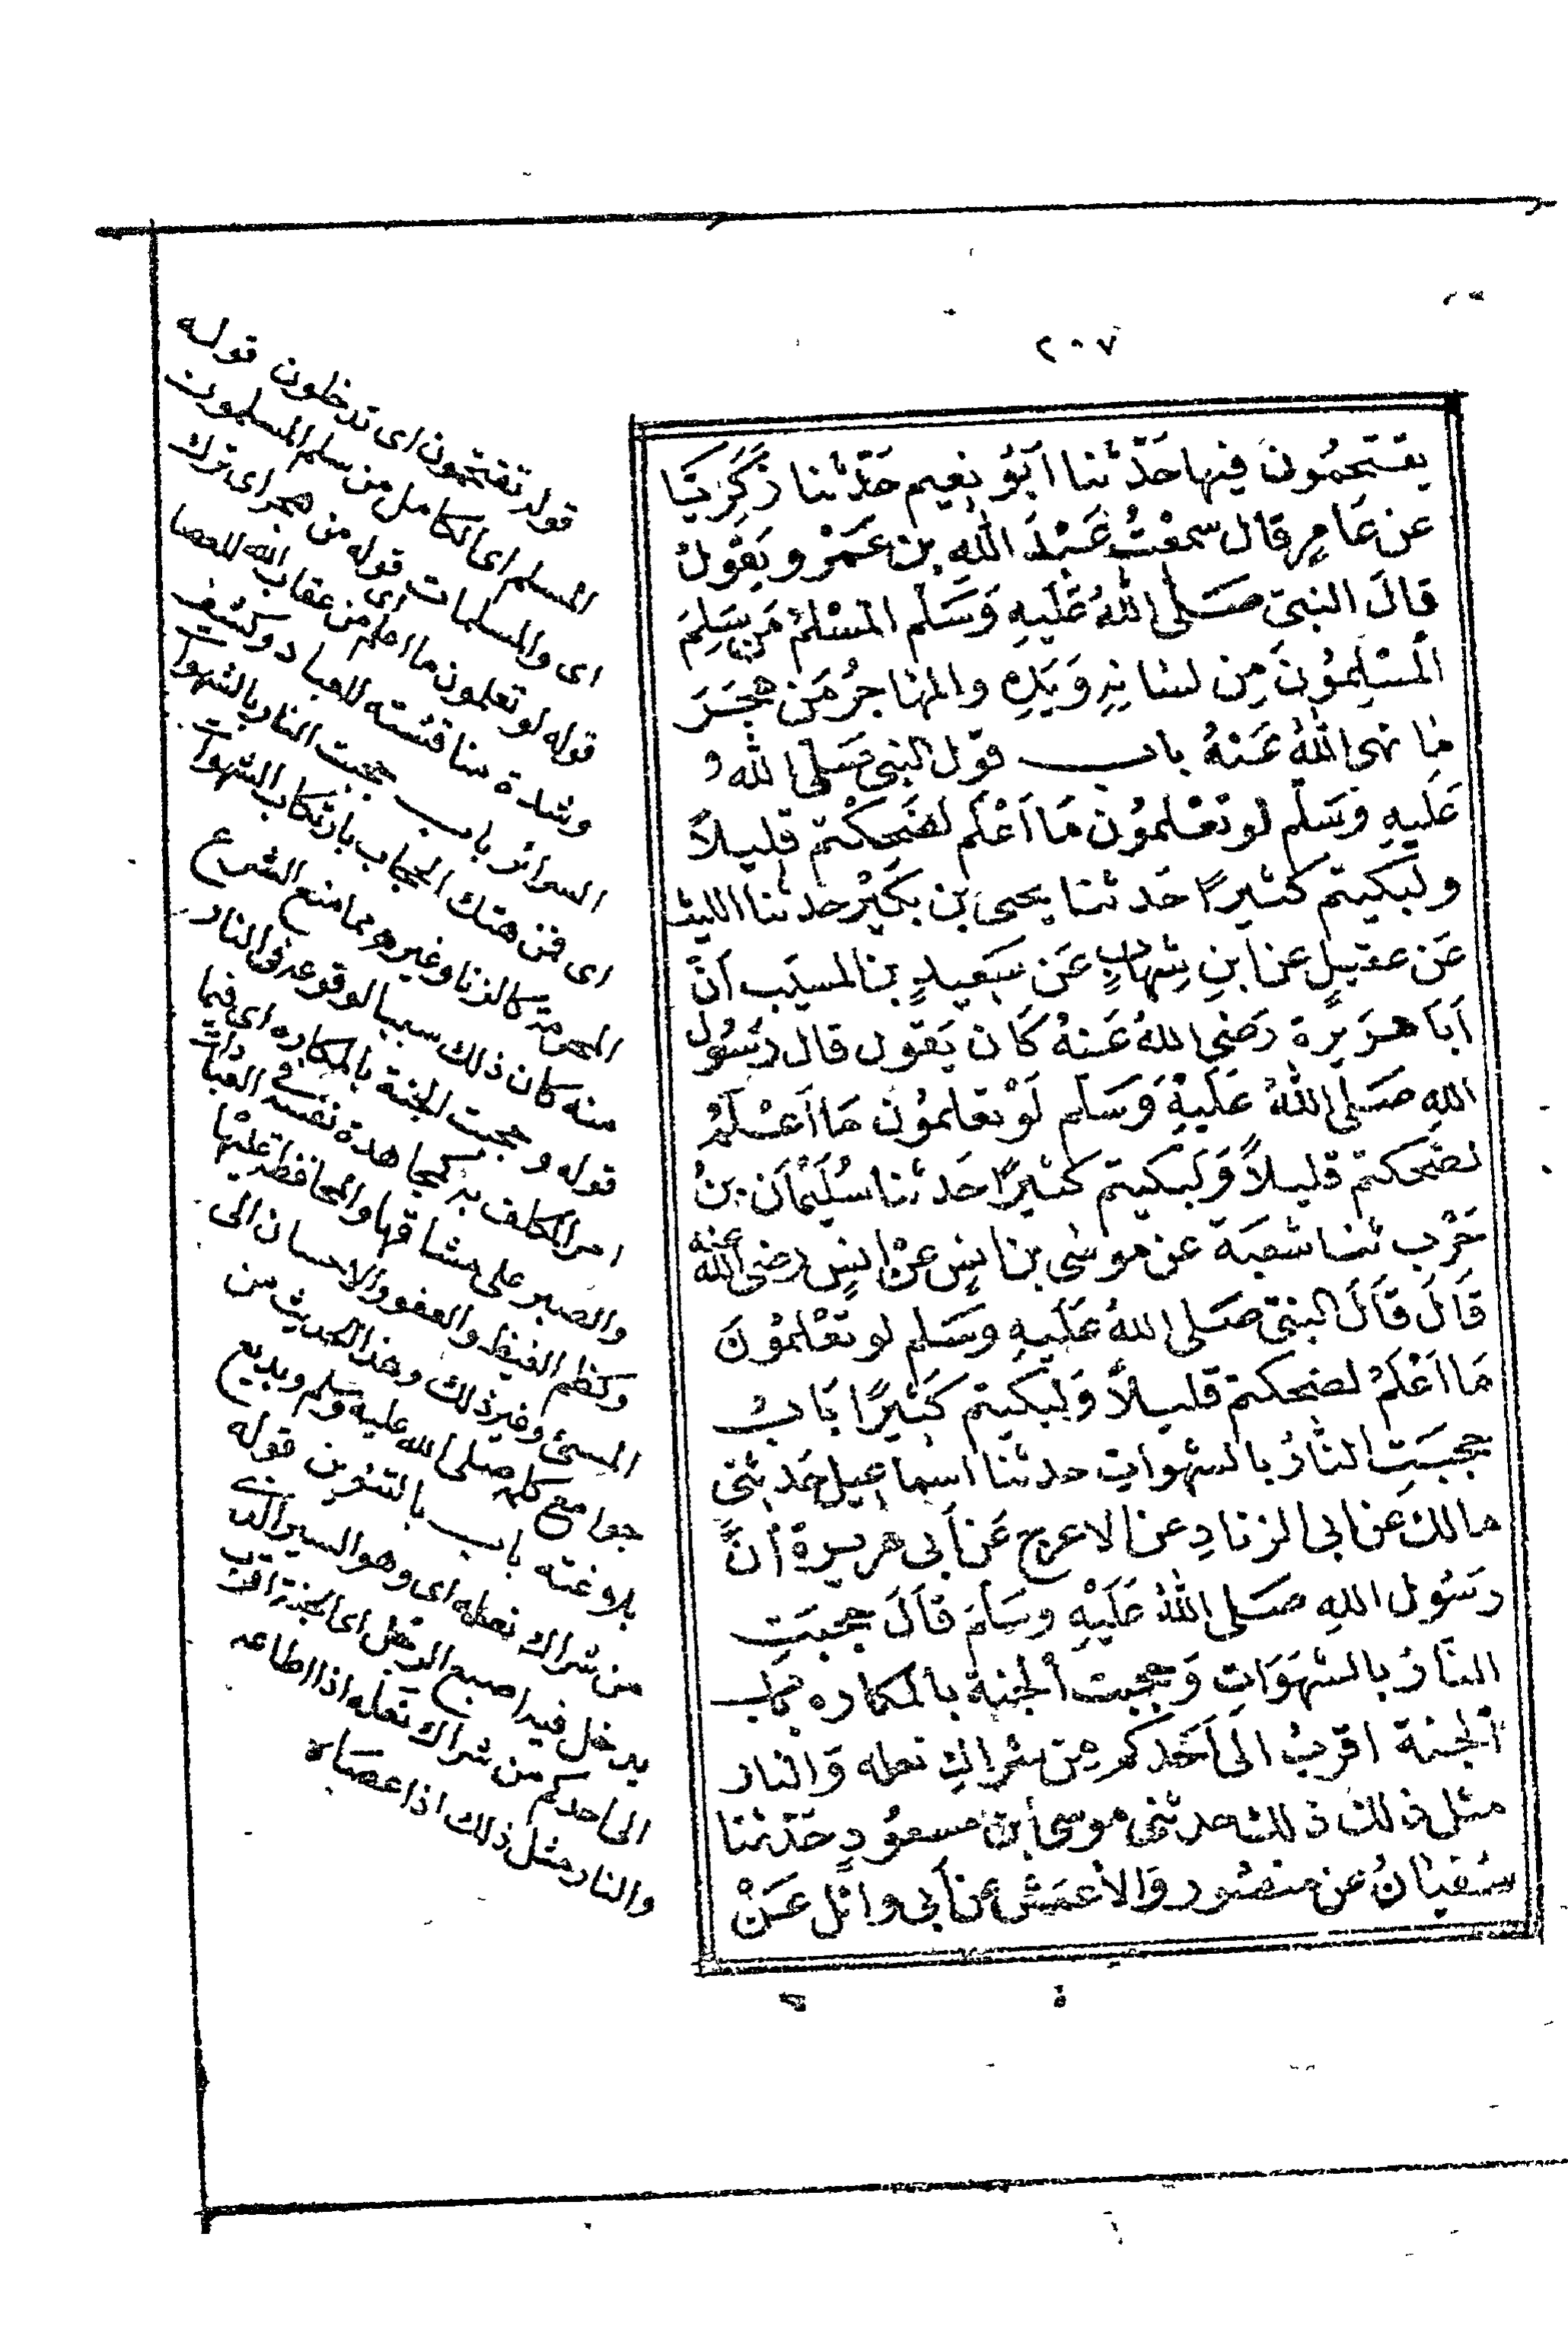 ٢٠٧
يقتحمُونَ فيها حَدّثنا اَبُو نعيم حَدّثنا زَكَرِيَّا
عن عَامِرٍ قال سمعْتُ عَبْدَ اللهِ بن عَمْرو يَقُولُ
قالَ النبىّ صَلى اللهُ عَلَيهِ وَسَلم المسْلمُ مَن سَلِمَ
المسْلِمُونَ مِن لسَانِهِ وَيَدِهِ والمهَاجرُ مَن هَجَرَ
مَا نهى اللهُ عَنهُ باب قوْل النبى صَلى الله
عَلَيهِ وَسَلّم لو تعْلمُونَ مَا اَعْلَم لضحِكْتم قليلاً
ولبَكيتم كثيرًا حَدثنا يحيى بن بكَيْر حدثنا الليث
عَن عقيلٍ عن ابنِ شِهَابٍ عَن سَعيدٍ بن المسيب اَنَّ
اَبَا هرَيرة رَضِى اللهُ عَنهُ كَان يَقول قال رسُول
اللهِ صَلى اللهُ عَلَيهِ وَسَلم لَوْ تعَلمُونَ مَا اَعْلَمُ
لضحكتم قليلاً وَلَبكيتم كثيرًا حَدثنا سُلَيْمَان بنُ
حَرْب ثنا شعبَة عن موسى بن انسٍ عنْ انسٍ رضى الله عنه
قَالَ قَالَ النبىّ صَلى اللهُ عَلَيهِ وسَلم لو تعْلمُونَ
مَا اَعْلَمُ لضحكتم قليلاً وَلبكيتم كَثيرًا بَابُ
حجبَتِ النَّارُ بالشهواتِ حدثنا اسماعيل حَدثنى
مالك عَن ابى الزنادِ عن الاعرج عَن اَبى هريرة اَنَّ
رسُول اللهِ صَلى اللهُ عَلَيْهِ وسَلمَ قَالَ حجبَتِ
النَّارُ بالشهَوَاتِ وَحجبت الجنة بالمكاره باب
الجنة اقربُ الى اَحَدكم مِن شراكِ نعله وَالنار
مثل ذلك حدثنى موسى بن مسعُودٍ حَدّثنا
سُفيانُ عن منصُور وَالاَعمَش عن اَبى وائل عَنْ
قوله تقتحمون اى تدخلون قوله
المسلم اى الكامل من سلم المسلمون
اى والمسلمات قوله من هجر اى ترك
قوله لو تعلمون ما اعلم اى من عقاب الله للعصاة
وشدة مناقشته للعباد وكشف
السرائر باب حجبت النار بالشهوات
اى فمن هتك الحجاب بارتكاب الشهوات
المحرمة كالزنا وغيره مما منع الشرع
منه كان ذلك سببا لوقوعه فى النار
قوله وحجبت الجنة بالمكاره اى فيما
امر المكلف به كمجاهدة نفسه فى العبادات
والصبر على مشاقها والمحافظة عليها
وكظم الغيظ والعفو والاحسان الى
المسئ وغير ذلك وهذا الحديث من
جوامع كلمه صلى الله عليه وسلم وبديع
بلاغته باب بالتنوين قوله
من شراك نعله اى وهو السير الذى
يدخل فيه اصبع الرجل اى الجنة اقرب
الى احدكم من شراك نعله اذا اطاعه
والنار مثل ذلك اذا عصاه